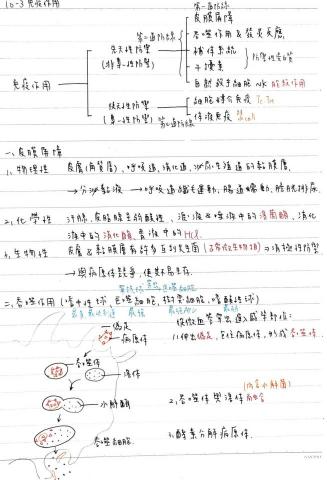 10-3 免疫作用
第一道防線
皮膜屏障
第二道防線
吞噬作用 & 發炎反應
先天性防禦
(非專一性防禦)
補體系統
干擾素
防禦性蛋白質
自然殺手細胞 NK
免疫作用
後天性防禦
(專一性防禦)
第三道防線
細胞媒介免疫 Tc
體液免疫
一、皮膜屏障
1. 物理性 皮膚(角質層)、呼吸道、消化道、泌尿生殖道的黏膜層
→分泌黏液 → 呼吸道纖毛運動、腸道蠕動、膀胱排尿
2. 化學性 汗腺、皮脂腺呈弱酸性、淚液&唾液中的溶菌酶、消化
液中的消化酶、胃液中的HCl.
生物性 皮膚&黏膜層有許多互利共生菌(正常微生物相)→消極性防禦
→與病原體競爭,使其不易生存.
二、吞噬作用(嗜中性球、巨噬細胞、樹突細胞、嗜酸性球)
從微血管穿出進入感染部位:
偽足
病原體
1. 伸出偽足,包住病原體,形成吞噬體.
吞噬體
溶體
(內含水解酶)
2. 吞噬體與溶體融合
水解酶
3. 酵素分解病原體.
吞噬細胞